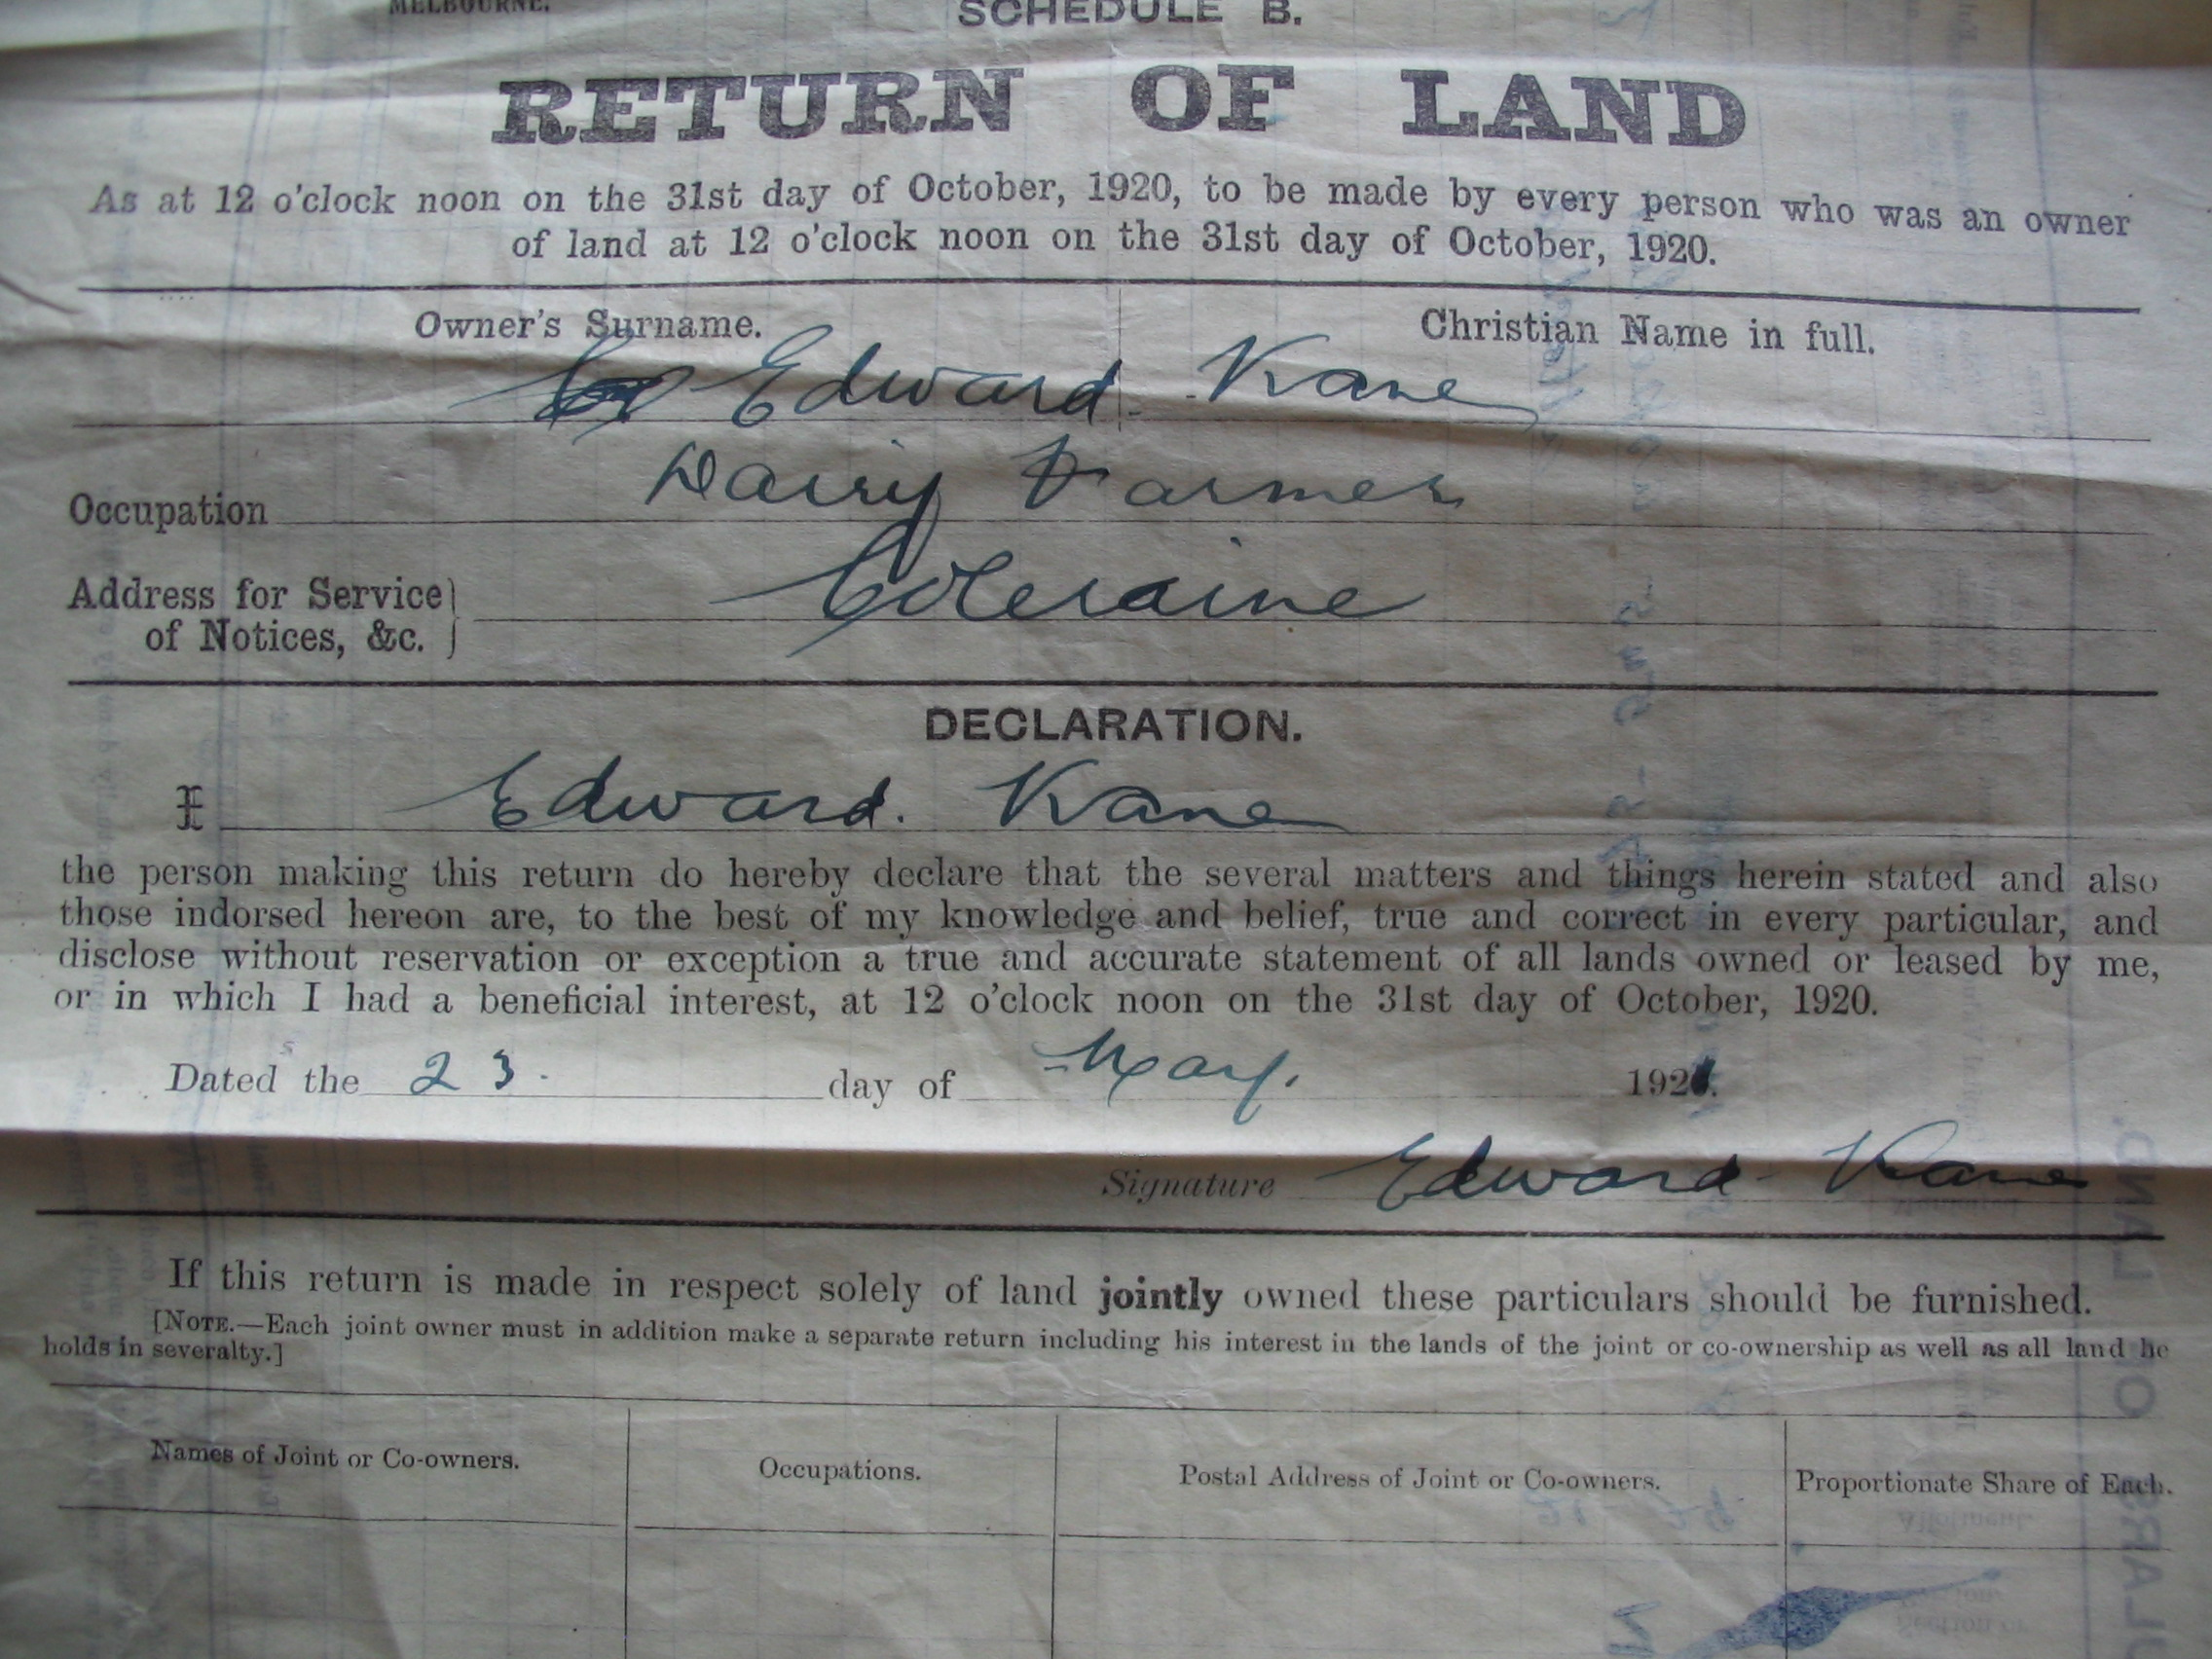 MELBOURNE.
SCHEDULE B.
RETURN OF LAND
As at 12 o'clock noon on the 31st day of October, 1920, to be made by every person who was an owner
of land at 12 o'clock noon on the 31st day of October, 1920.
Owner's Surname. Christian Name in full.
Edward Kane
Dairy Farmer
Occupation
Coleraine
Address for Service
of Notices, &c.
DECLARATION.
I Edward. Kane
the person making this return do hereby declare that the several matters and things herein stated and also
those indorsed hereon are, to the best of my knowledge and belief, true and correct in every particular, and
disclose without reservation or exception a true and accurate statement of all lands owned or leased by me,
or in which I had a beneficial interest, at 12 o'clock noon on the 31st day of October, 1920.
Dated the 23. day of May. 1921.
Signature Edward Kane
If this return is made in respect solely of land jointly owned these particulars should be furnished.
[NOTE.—Each joint owner must in addition make a separate return including his interest in the lands of the joint or co-ownership as well as all land he
holds in severalty.]
Names of Joint or Co-owners. Occupations. Postal Address of Joint or Co-owners. Proportionate Share of Each.